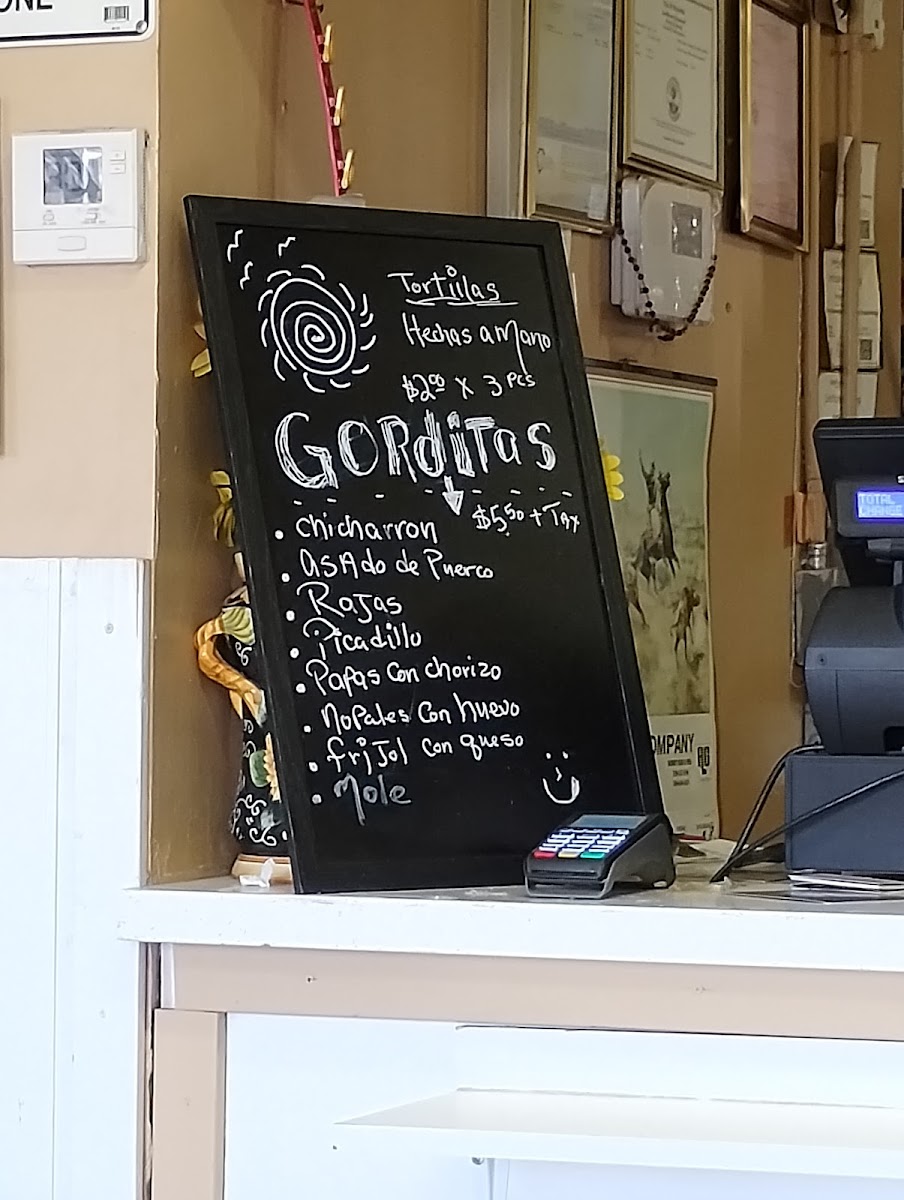 ONE
Tortillas
Hechas a Mano
$2.00 x 3 pcs
GORditas
$5.50 + Tax
• chicharron
• asAdo de Puerco
• Rajas
• Picadillo
• Papas con chorizo
• Nopales con huevo
• frijol con queso
• Mole
OMPANY
TOTAL
CHANGE